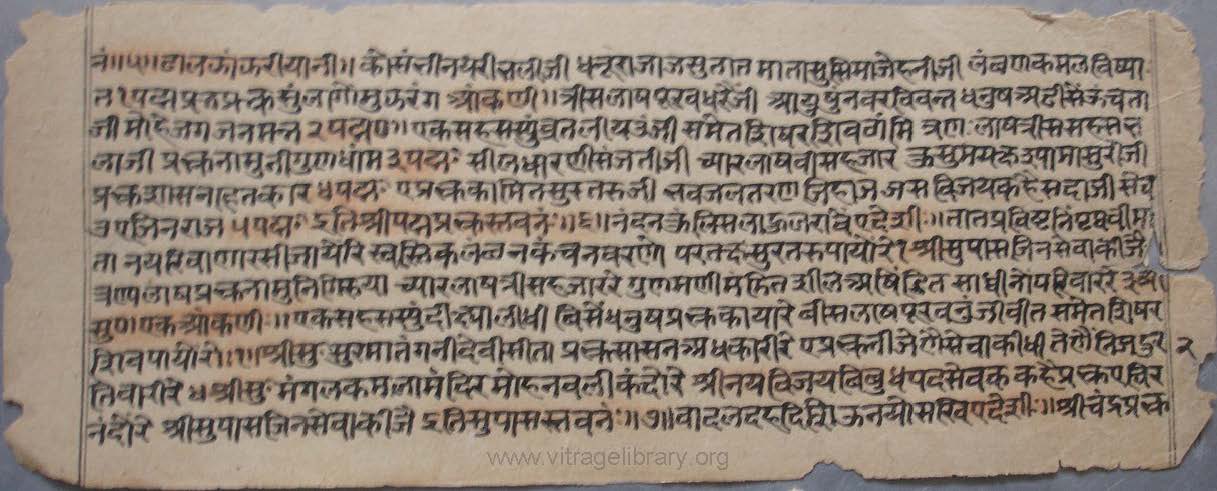 नं॥५॥ ढालफाफरीयानी॥ कोसंबीनयरीभलीजी धनूराजाजसुतात मातासुसिमाजेहनीजी लंबणकमलविष्या
त १ पद्मप्रभप्रभुसुंलागोमुफरंग आंकणी॥ त्रीसलाषपूरवधरेजी आयुषुंनवरविवन्न धनुषअढीसेंऊंचता
जी मोहेजगजनमन्न २ पद्म॰ एकसहससुंव्रतलीयउंजी समेतशिषरशिवठांमि त्रण लाषत्रीससहसभ
लाजी प्रभुनामुनीगुणधांम ३ पद्म॰ सीलधारणीसंजतीजी च्यारलाषवीसहजार कुसुमयक्षश्यामासुरीजी
प्रभुशासनहितकार ४ पद्म॰ एप्रभुकामितसुरतरुजी भवजलतरणजिहाज जसविजयकहेसदाजी सेवं
उएजिनराज ५ पद्म॰ इतिश्रीपद्मप्रभस्तवनं॥६॥ नंदनकुं त्रिसला हुलरावे एदेशी॥ तातप्रतिष्टनिंपृथवीमा
ता नयरिवाणारसीजायोरे स्वस्तिकलंछनकंचनवरणो परतक्षसुरतरुपायोरे १ श्रीसुपासजिनसेवाकीजे
त्रण्यलाषप्रभुनामुनिगिरुया च्यारलाषत्रीसहजाररे गुणमणीमंडितशीलअषंडित साधीनोपरिवाररे
सुण एक आंकणी॥ एकसहससुंदीक्षालीधी बिसेंधनुषप्रभुकायारे वीसलाषपूरवनुंजीवीत समेतशिषर
शिवपायोरे श्रीसु॰ सुरमातंगनेंदेवीसीता प्रभुसासनअधकारीरे एप्रभुनीजेणेंसेवाकीधी तेणेंनिजदुर २
तिवारीरे ४ श्रीसु॰ मंगलकमलामंदिर मोहनवलीकंदोरे श्रीनयविजयबिबुधपदसेवक कहेप्रभुएचिर
नंदोरे श्रीसुपासजिनसेवाकीजे इतिसुपासस्तवनं॥७॥ वादलदहदिशिऊनयोसखि एदेशी॥ श्रीचंद्रप्रभ
www.vitragelibrary.org